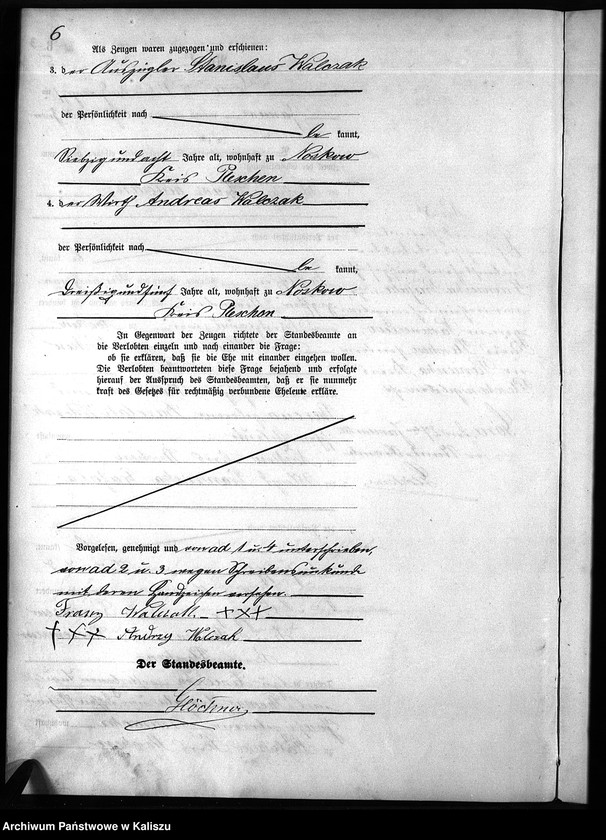 6
Als Zeugen waren zugezogen und erschienen:
3. der Auszügler Stanislaus Walczak
der Persönlichkeit nach
be kannt,
Siebzig und acht Jahre alt, wohnhaft zu Noskow
Kreis Pleschen
4. der Wirth Andreas Walczak
der Persönlichkeit nach
be kannt,
Dreißig und fünf Jahre alt, wohnhaft zu Noskow
Kreis Pleschen
In Gegenwart der Zeugen richtete der Standesbeamte an
die Verlobten einzeln und nach einander die Frage:
ob sie erklären, daß sie die Ehe mit einander eingehen wollen.
Die Verlobten beantworteten diese Frage bejahend und erfolgte
hierauf der Ausspruch des Standesbeamten, daß er sie nunmehr
kraft des Gesetzes für rechtmäßig verbundene Eheleute erkläre.
Vorgelesen, genehmigt und von ad 1 u. 4 unterschrieben,
von ad 2 u. 3 wegen Schreibensunkunde
mit deren Handzeichen versehen.
Walczak. +++
+++ Andrzy Walczak
Der Standesbeamte.
Archiwum Państwowe w Kaliszu